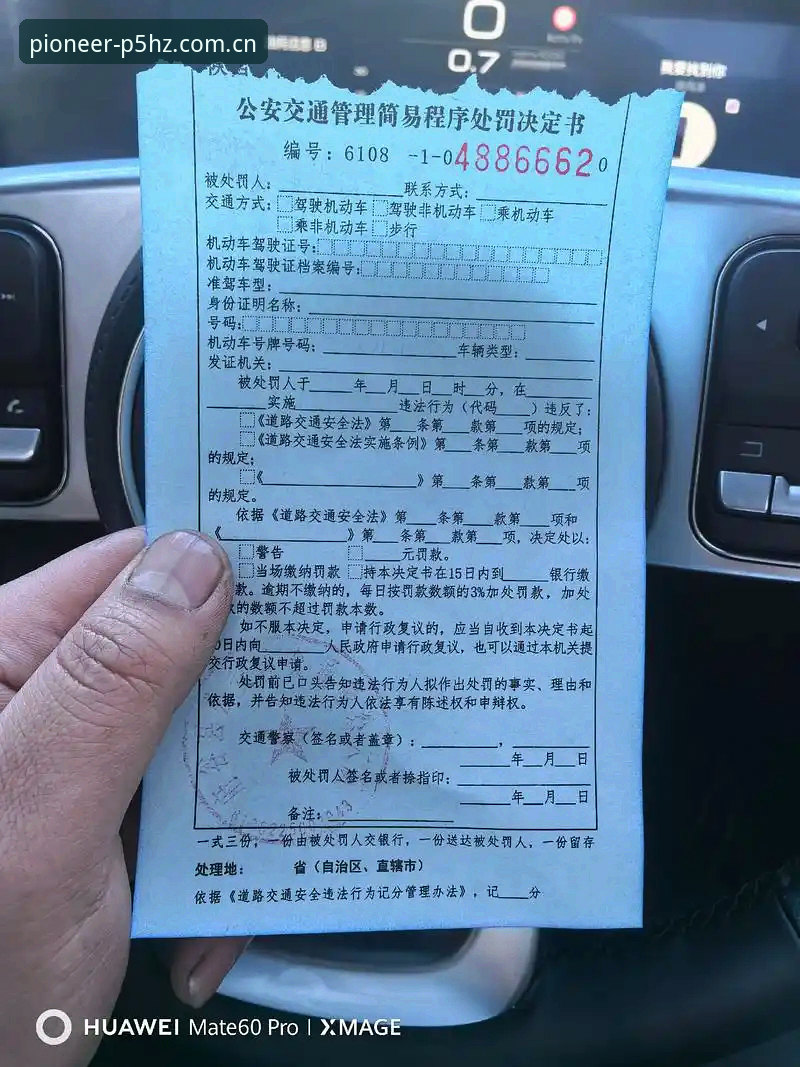 pioneer-p5hz.com.cn
0
0.7
我要找到你
公安交通管理简易程序处罚决定书
编号：6108 -1-048866620
被处罚人：______ 联系方式：______
交通方式：□驾驶机动车 □驾驶非机动车 □乘机动车
□乘非机动车 □步行
机动车驾驶证号：
机动车驾驶证档案编号：
准驾车型：
身份证明名称：
号码：
机动车号牌号码：______ 车辆类型：______
发证机关：
被处罚人于____年__月__日__时__分，在
______实施______违法行为（代码____）违反了：
□《道路交通安全法》第___条第___款第___项的规定；
□《道路交通安全法实施条例》第___条第___款第___项
的规定；
□《______》第___条第___款第___项
的规定。
依据《道路交通安全法》第___条第___款第___项和
《______》第___条第___款第___项，决定处以：
□警告 □____元罚款。
□当场缴纳罚款 □持本决定书在15日内到____银行缴
款。逾期不缴纳的，每日按罚款数额的3%加处罚款，加处
的数额不超过罚款本数。
如不服本决定，申请行政复议的，应当自收到本决定书起
0日内向______人民政府申请行政复议，也可以通过本机关提
交行政复议申请。
处罚前已口头告知违法行为人拟作出处罚的事实、理由和
依据，并告知违法行为人依法享有陈述权和申辩权。
交通警察（签名或者盖章）：______，______
____年__月__日
被处罚人签名或者捺指印：______
____年__月__日
备注：______
一式三份，一份由被处罚人交银行，一份送达被处罚人，一份留存
处理地： 省（自治区、直辖市）
依据《道路交通安全违法行为记分管理办法》，记____分
HUAWEI Mate60 Pro | XMAGE